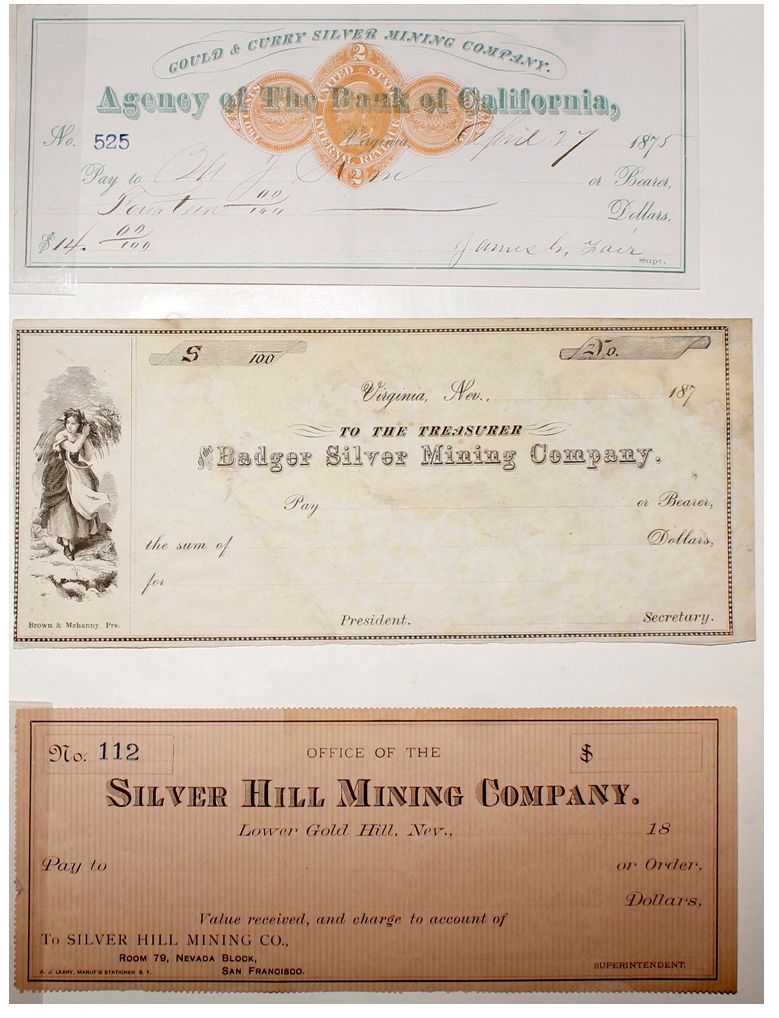 GOULD & CURRY SILVER MINING COMPANY.
2
UNITED STATES
INTERNAL REVENUE
2
Agency of The Bank of California,
No. 525 Virginia, April 27 1875
Pay to or Bearer,
Fourteen 00/100 Dollars.
$14. 00/100 James G. Fair
Supt.
$ 100 No.
Virginia, Nev., 187
TO THE TREASURER
OF THE Badger Silver Mining Company.
Pay or Bearer,
the sum of Dollars,
for
President. Secretary.
Brown & Mahanny, Prs.
No. 112 OFFICE OF THE $
SILVER HILL MINING COMPANY.
Lower Gold Hill, Nev., 18
Pay to or Order,
Dollars,
Value received, and charge to account of
To SILVER HILL MINING CO.,
ROOM 79, NEVADA BLOCK,
SAN FRANCISCO.
A. J. LEARY, MANUF'G STATIONER S. F.
SUPERINTENDENT.